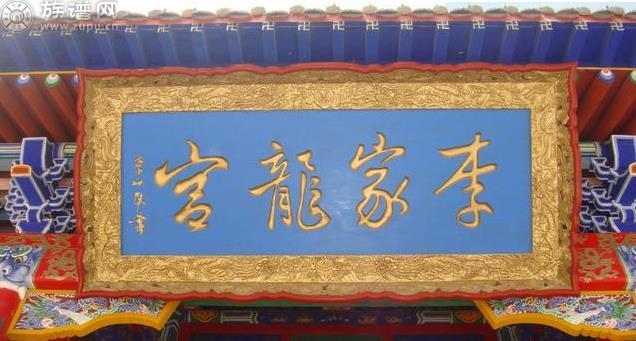 族谱网
www.zupu.cn
李家龍宮